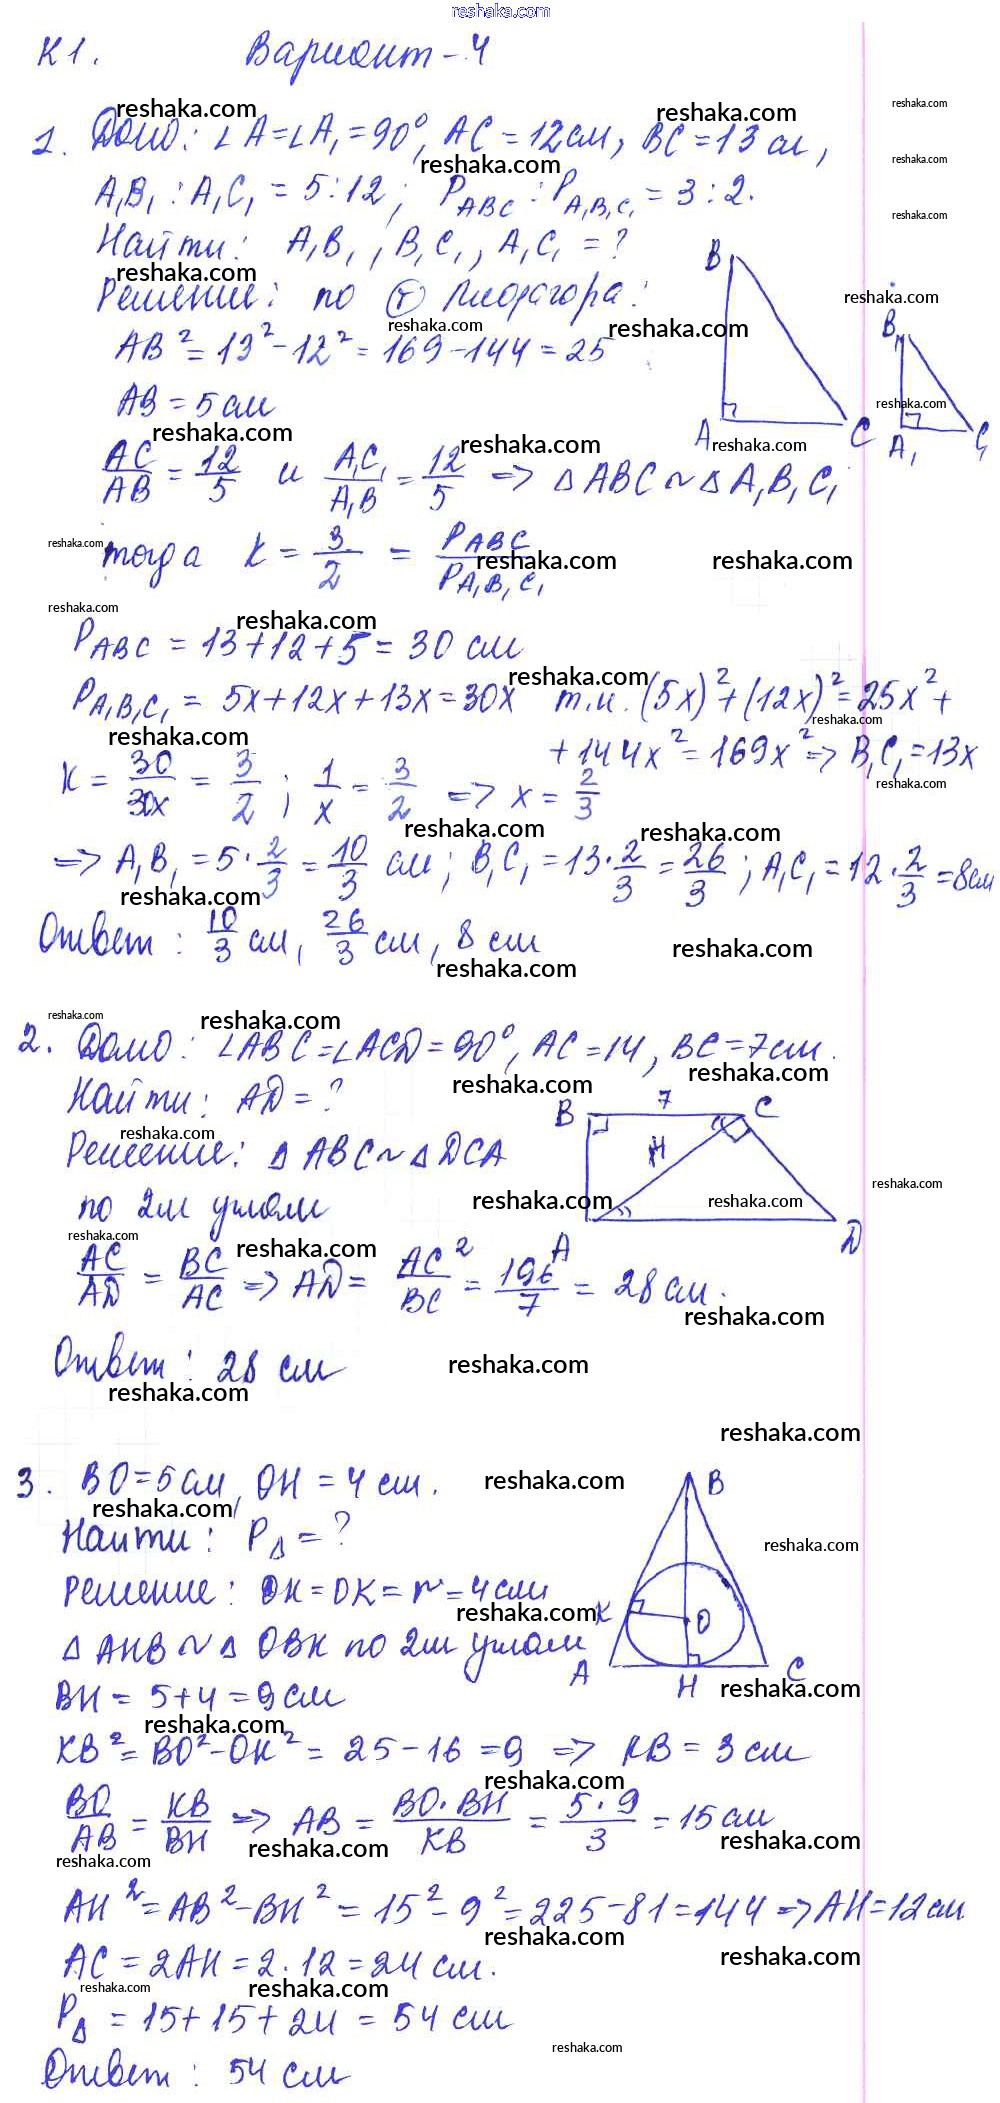 reshaka.com
К1. Вариант-4
1. Дано: ∠A=∠A₁=90°, AC=12см, BC=13 см,
A₁B₁ : A₁C₁ = 5:12; P_ABC : P_A₁B₁C₁ = 3:2.
Найти: A₁B₁, B₁C₁, A₁C₁ = ?
Решение: по (т) Пифагора:
AB² = 13² - 12² = 169 - 144 = 25
AB = 5 см
AC/AB = 12/5 и A₁C₁/A₁B = 12/5 => ΔABC ~ ΔA₁B₁C₁
тогда k = 3/2 = P_ABC/P_A₁B₁C₁
P_ABC = 13+12+5 = 30 см
P_A₁B₁C₁ = 5x+12x+13x=30x т.к. (5x)²+(12x)²=25x²+
+144x²=169x² => B₁C₁=13x
k = 30/30x = 3/2; 1/x = 3/2 => x = 2/3
=> A₁B₁ = 5·2/3 = 10/3 см; B₁C₁ = 13·2/3 = 26/3; A₁C₁ = 12·2/3 = 8см
Ответ: 10/3 см, 26/3 см, 8 см
2. Дано: ∠ABC=∠ACD=90°, AC=14, BC=7см.
Найти: AD=?
Решение: ΔABC ~ ΔDCA
по 2м углам
AC/AD = BC/AC => AD = AC²/BC = 196/7 = 28 см.
Ответ: 28 см
3. BO=5см, OH=4 см.
Найти: P_Δ=?
Решение: OH=OK=r=4см
ΔAHB ~ ΔOBK по 2м углам
BH = 5+4 = 9 см
KB² = BO²-OK² = 25-16 = 9 => KB = 3 см
BO/AB = KB/BH => AB = BO·BH/KB = 5·9/3 = 15 см
AH² = AB²-BH² = 15²-9² = 225-81 = 144 => AH = 12 см
AC = 2AH = 2·12 = 24 см.
P_Δ = 15+15+24 = 54 см
Ответ: 54 см
B
A
C
B₁
A₁
C₁
B
7
C
14
A
D
B
K
O
A
H
C